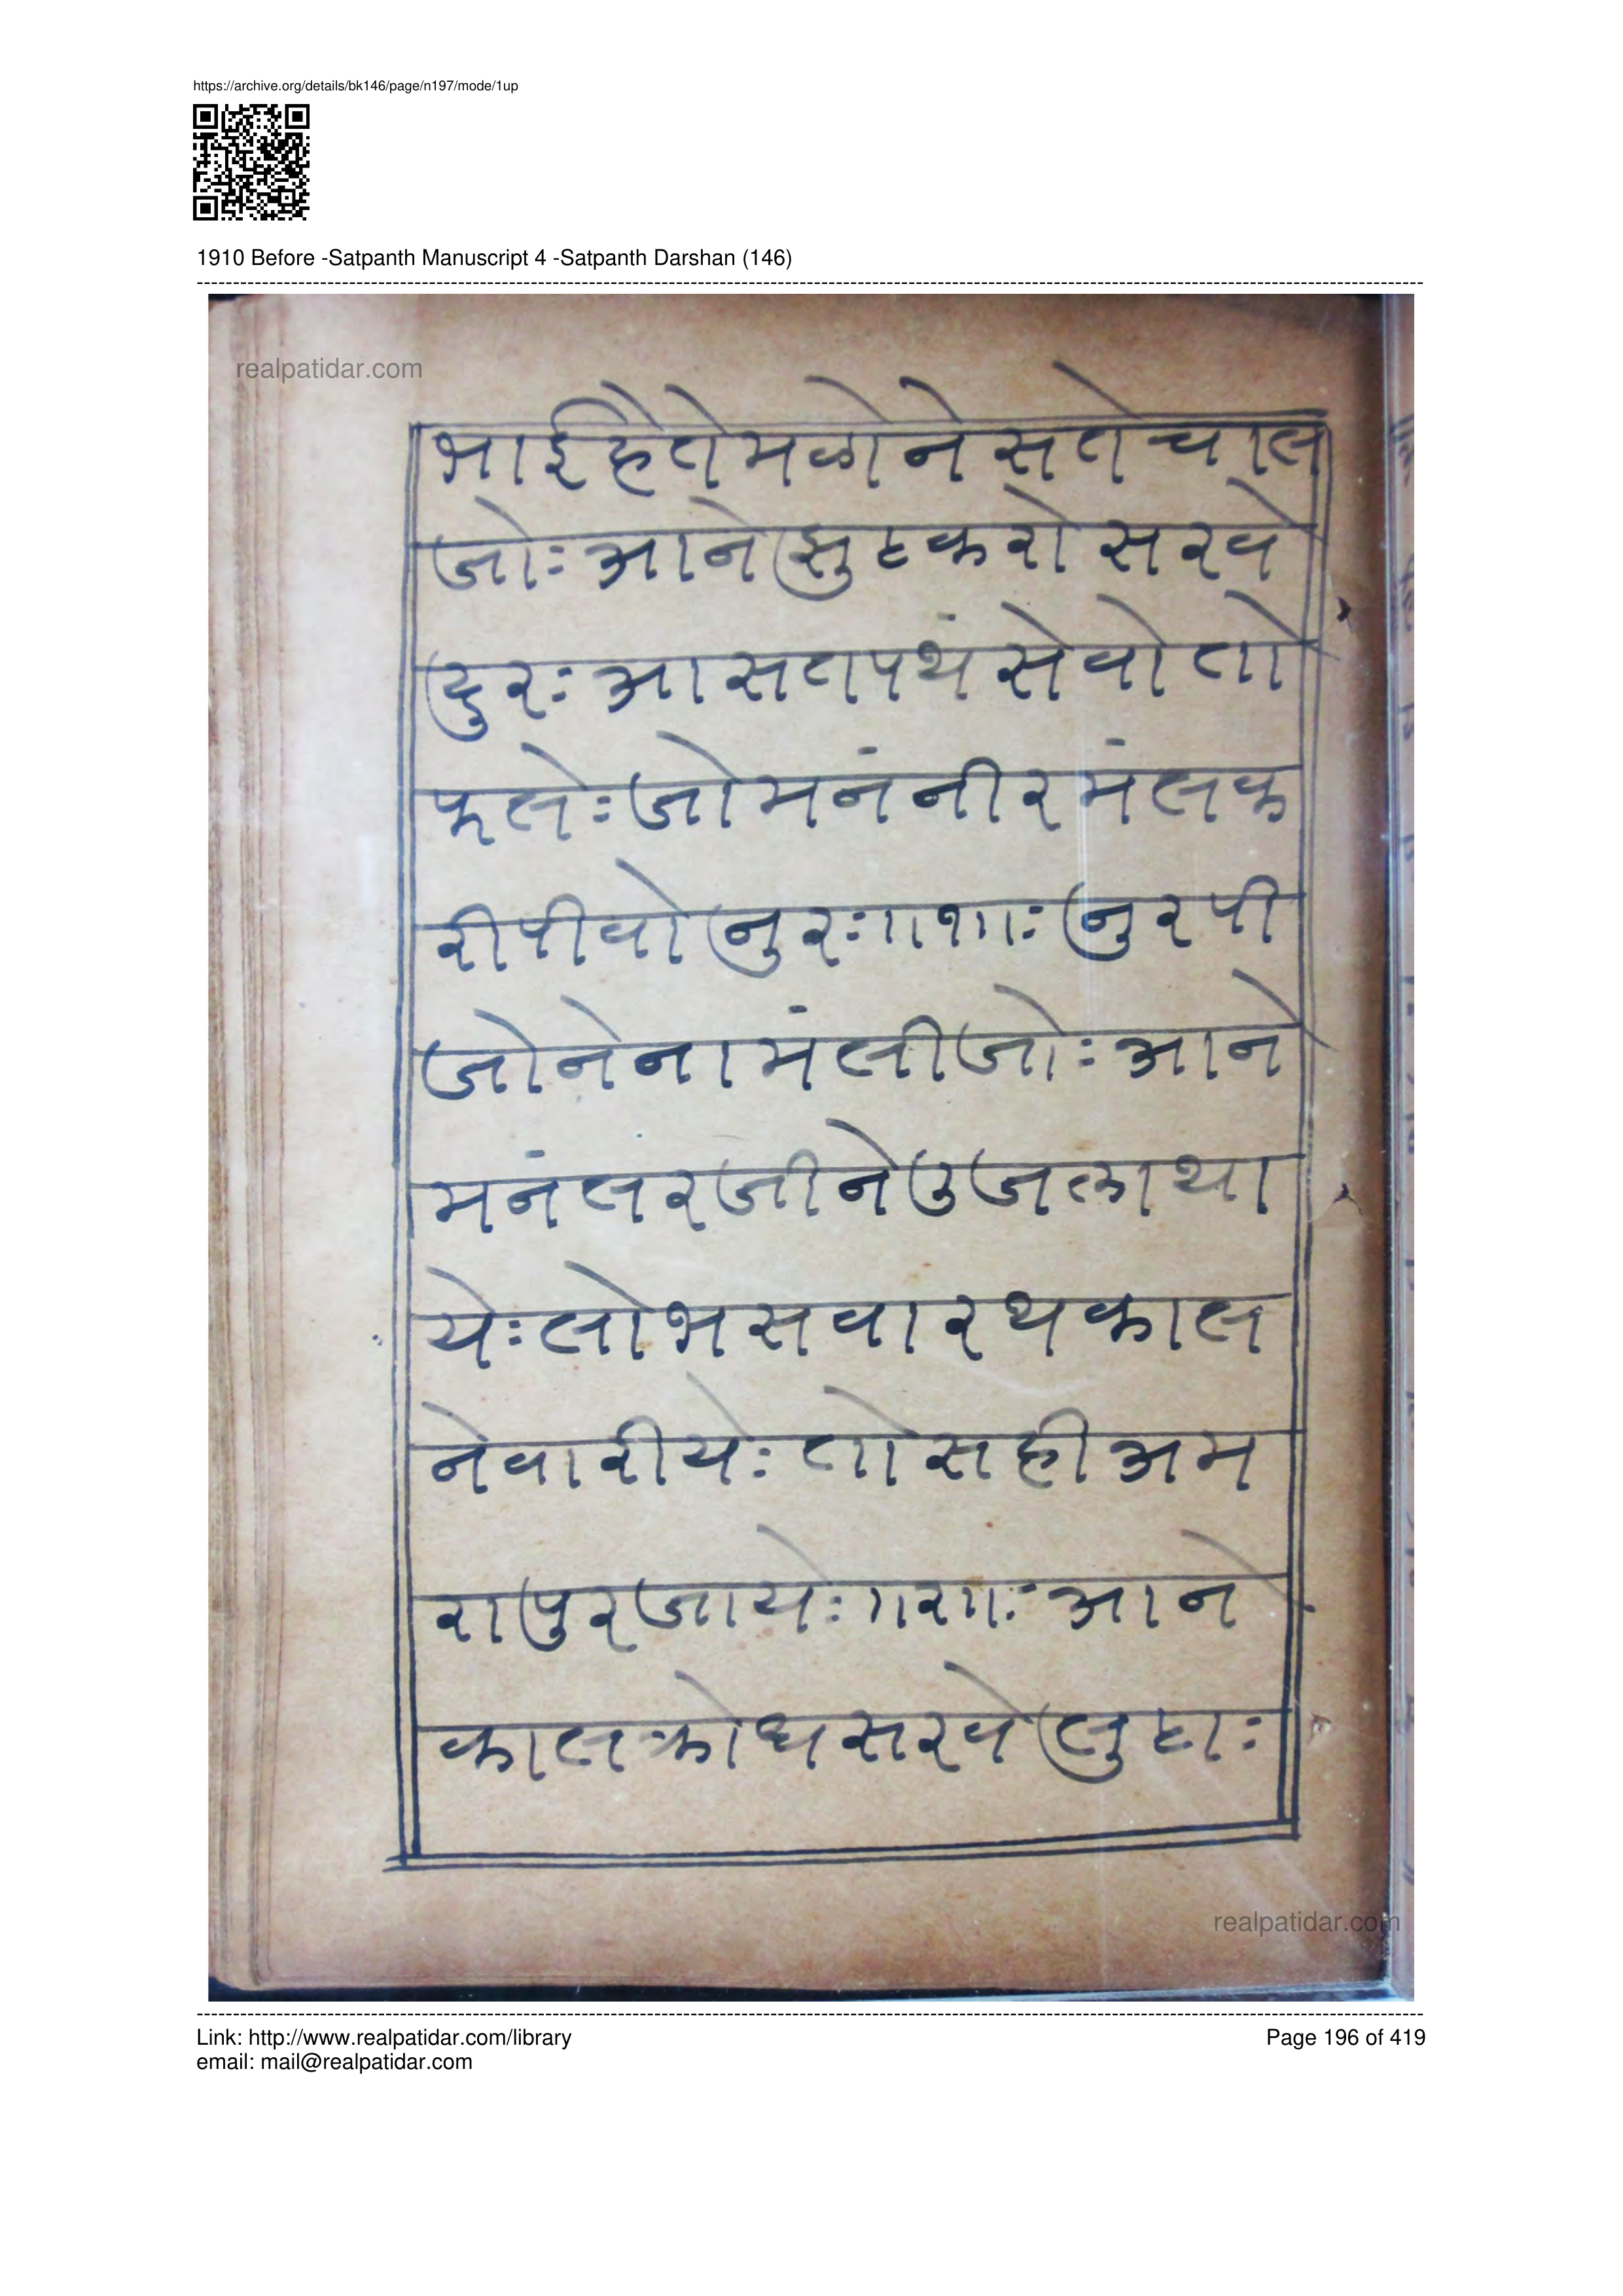 https://archive.org/details/bk146/page/n197/mode/1up
1910 Before -Satpanth Manuscript 4 -Satpanth Darshan (146)
realpatidar.com
भाई हैतो मळी ने सतो चाल
जोः आने झुट करो सरवे
दुरः आ सतपथं सेवो तो
फलेः जो मनं नीरमंल क
री पीवो नुरः॥१॥ः नुर पी
जोने नामं लीजोः आने
मनं सरजीने उजला था
येः लोभ सवारथ काल
नेवारीयेः तो सही अम
रापुर जायेः॥२॥ः आने
काल क्रोध सरवे लुटाः
realpatidar.com
Link: http://www.realpatidar.com/library
Page 196 of 419
email: mail@realpatidar.com